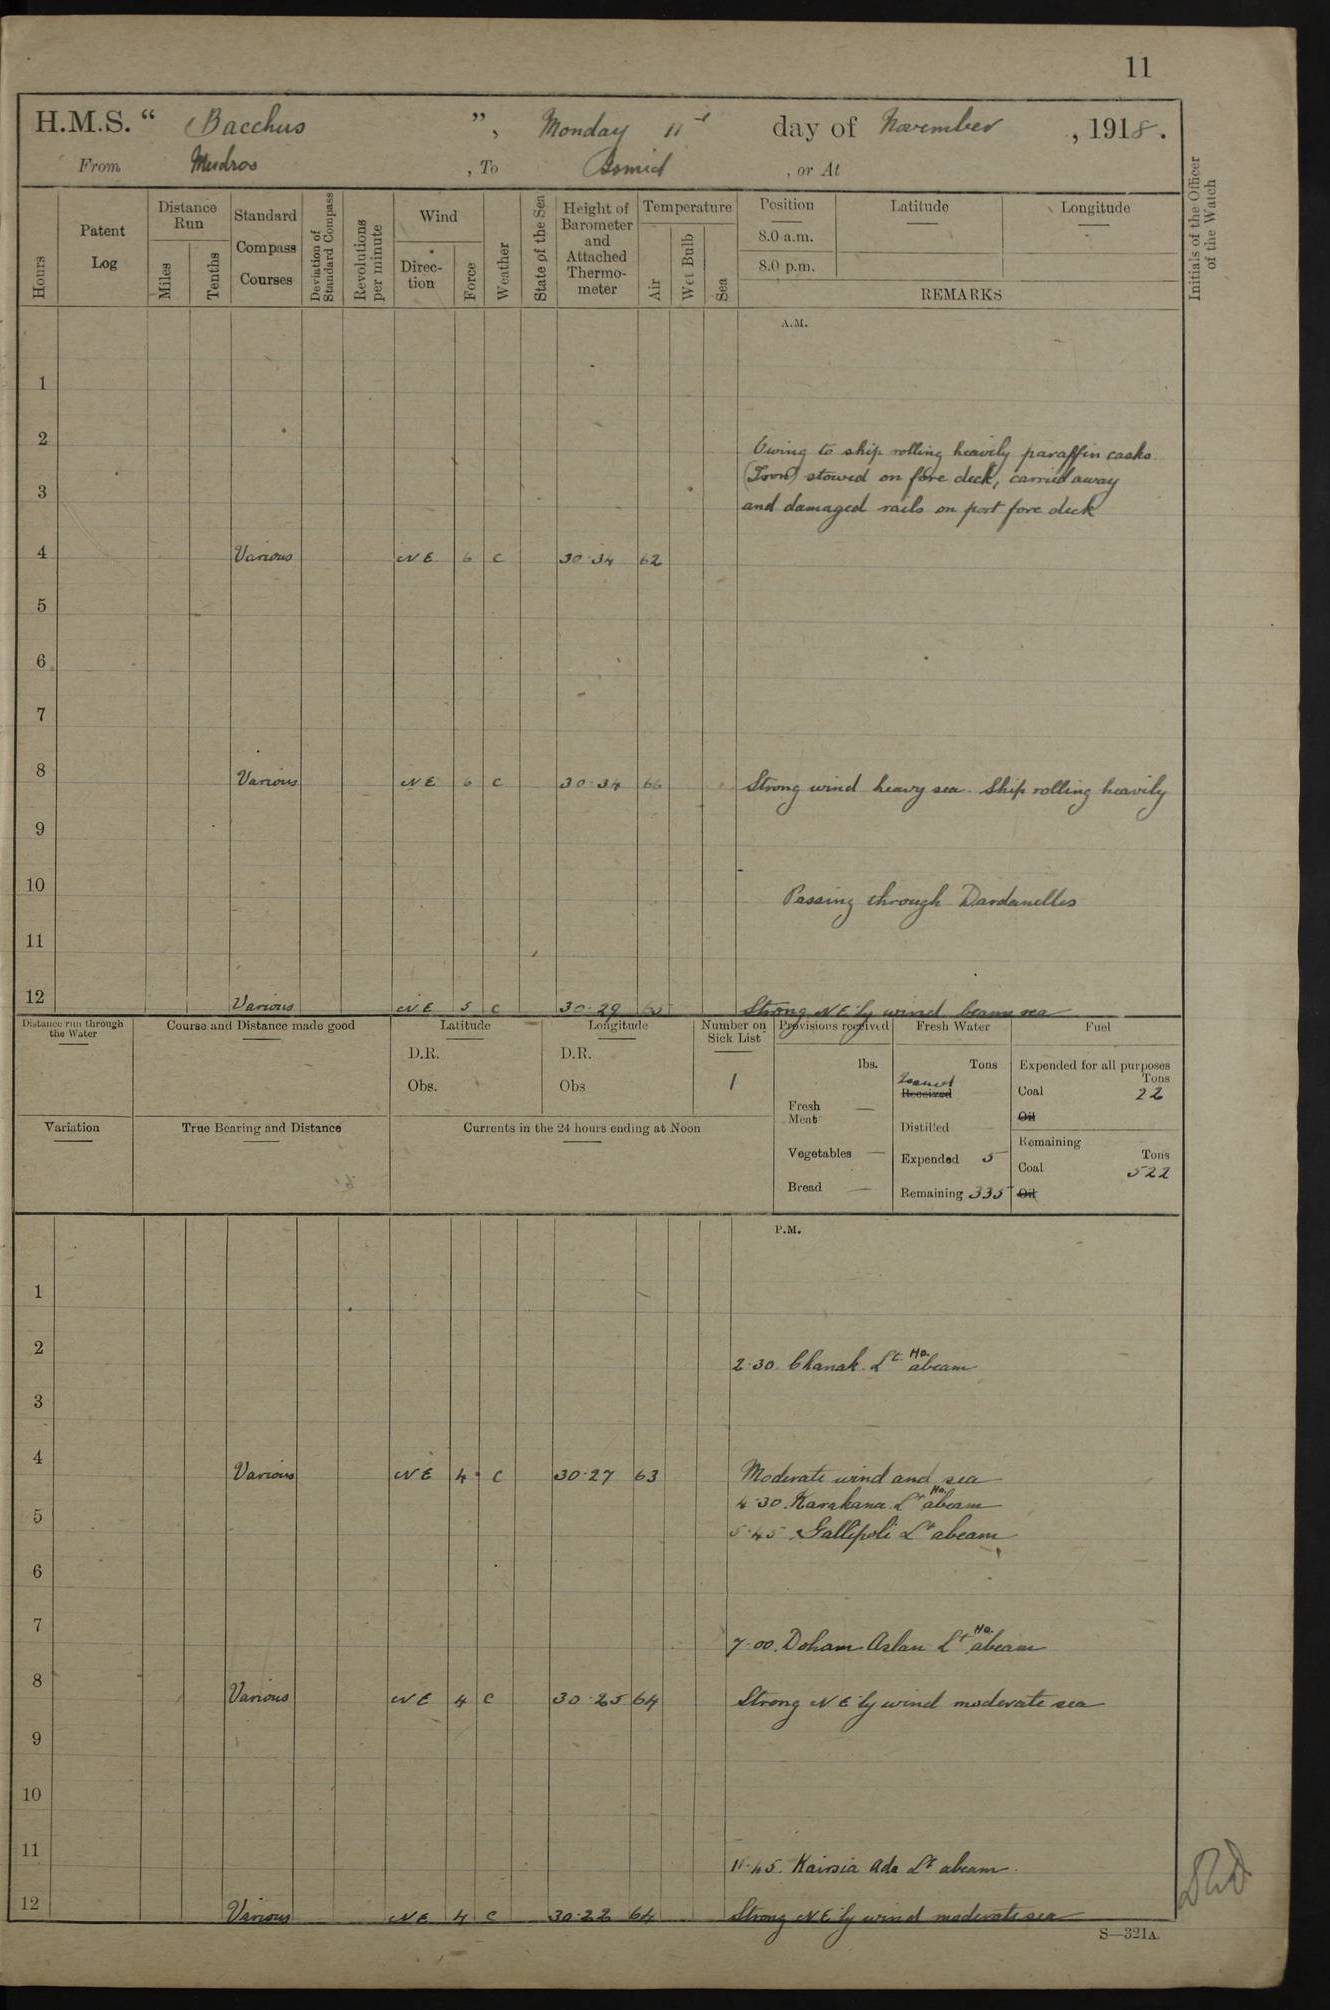 11
H.M.S. “ Bacchus ”, Monday 11th day of November, 1918.
From Mudros, To Ismid, or At
Hours
Patent Log
Distance Run
Miles
Tenths
Standard Compass Courses
Deviation of Standard Compass
Revolutions per minute
Wind
Direc-tion
Force
Weather
State of the Sea
Height of Barometer and Attached Thermo-meter
Temperature
Air
Wet Bulb
Sea
Position
8.0 a.m.
8.0 p.m.
Latitude
Longitude
REMARKS
Initials of the Officer of the Watch
A.M.
1
2
Owing to ship rolling heavily paraffin casks
3
(Iron) stowed on fore deck, carried away
and damaged rails on port fore deck
4 Various NE 6 c 30·34 62
5
6
7
8 Various NE 6 c 30·34 66 Strong wind heavy sea. Ship rolling heavily
9
10
Passing through Dardanelles
11
12 Various NE 5 c 30·29 65 Strong NE'ly wind beam sea
Distance run through the Water
Course and Distance made good
Latitude
D.R.
Obs.
Longitude
D.R.
Obs
Number on Sick List
1
Provisions received
lbs.
Fresh Meat —
Vegetables —
Bread —
Fresh Water
Tons
Received
Distilled
Expended 5
Remaining 335
Fuel
Expended for all purposes
Tons
Coal 22
Oil
Remaining
Tons
Coal 522
Oil
Variation
True Bearing and Distance
Currents in the 24 hours ending at Noon
P.M.
1
2
2·30 Chanak Lt Ho. abeam
3
4 Various NE 4 c 30·27 63 Moderate wind and sea
4·30. Karakana Lt Ho. abeam
5
5·45 Gallipoli Lt abeam
6
7
7·00. Doham Aslan Lt Ho. abeam
8 Various NE 4 c 30·25 64 Strong NE'ly wind moderate sea
9
10
11
11·45. Kairsia Ada Lt abeam.
12 Various NE 4 c 30·22 64 Strong NE'ly wind moderate sea
S—321A.